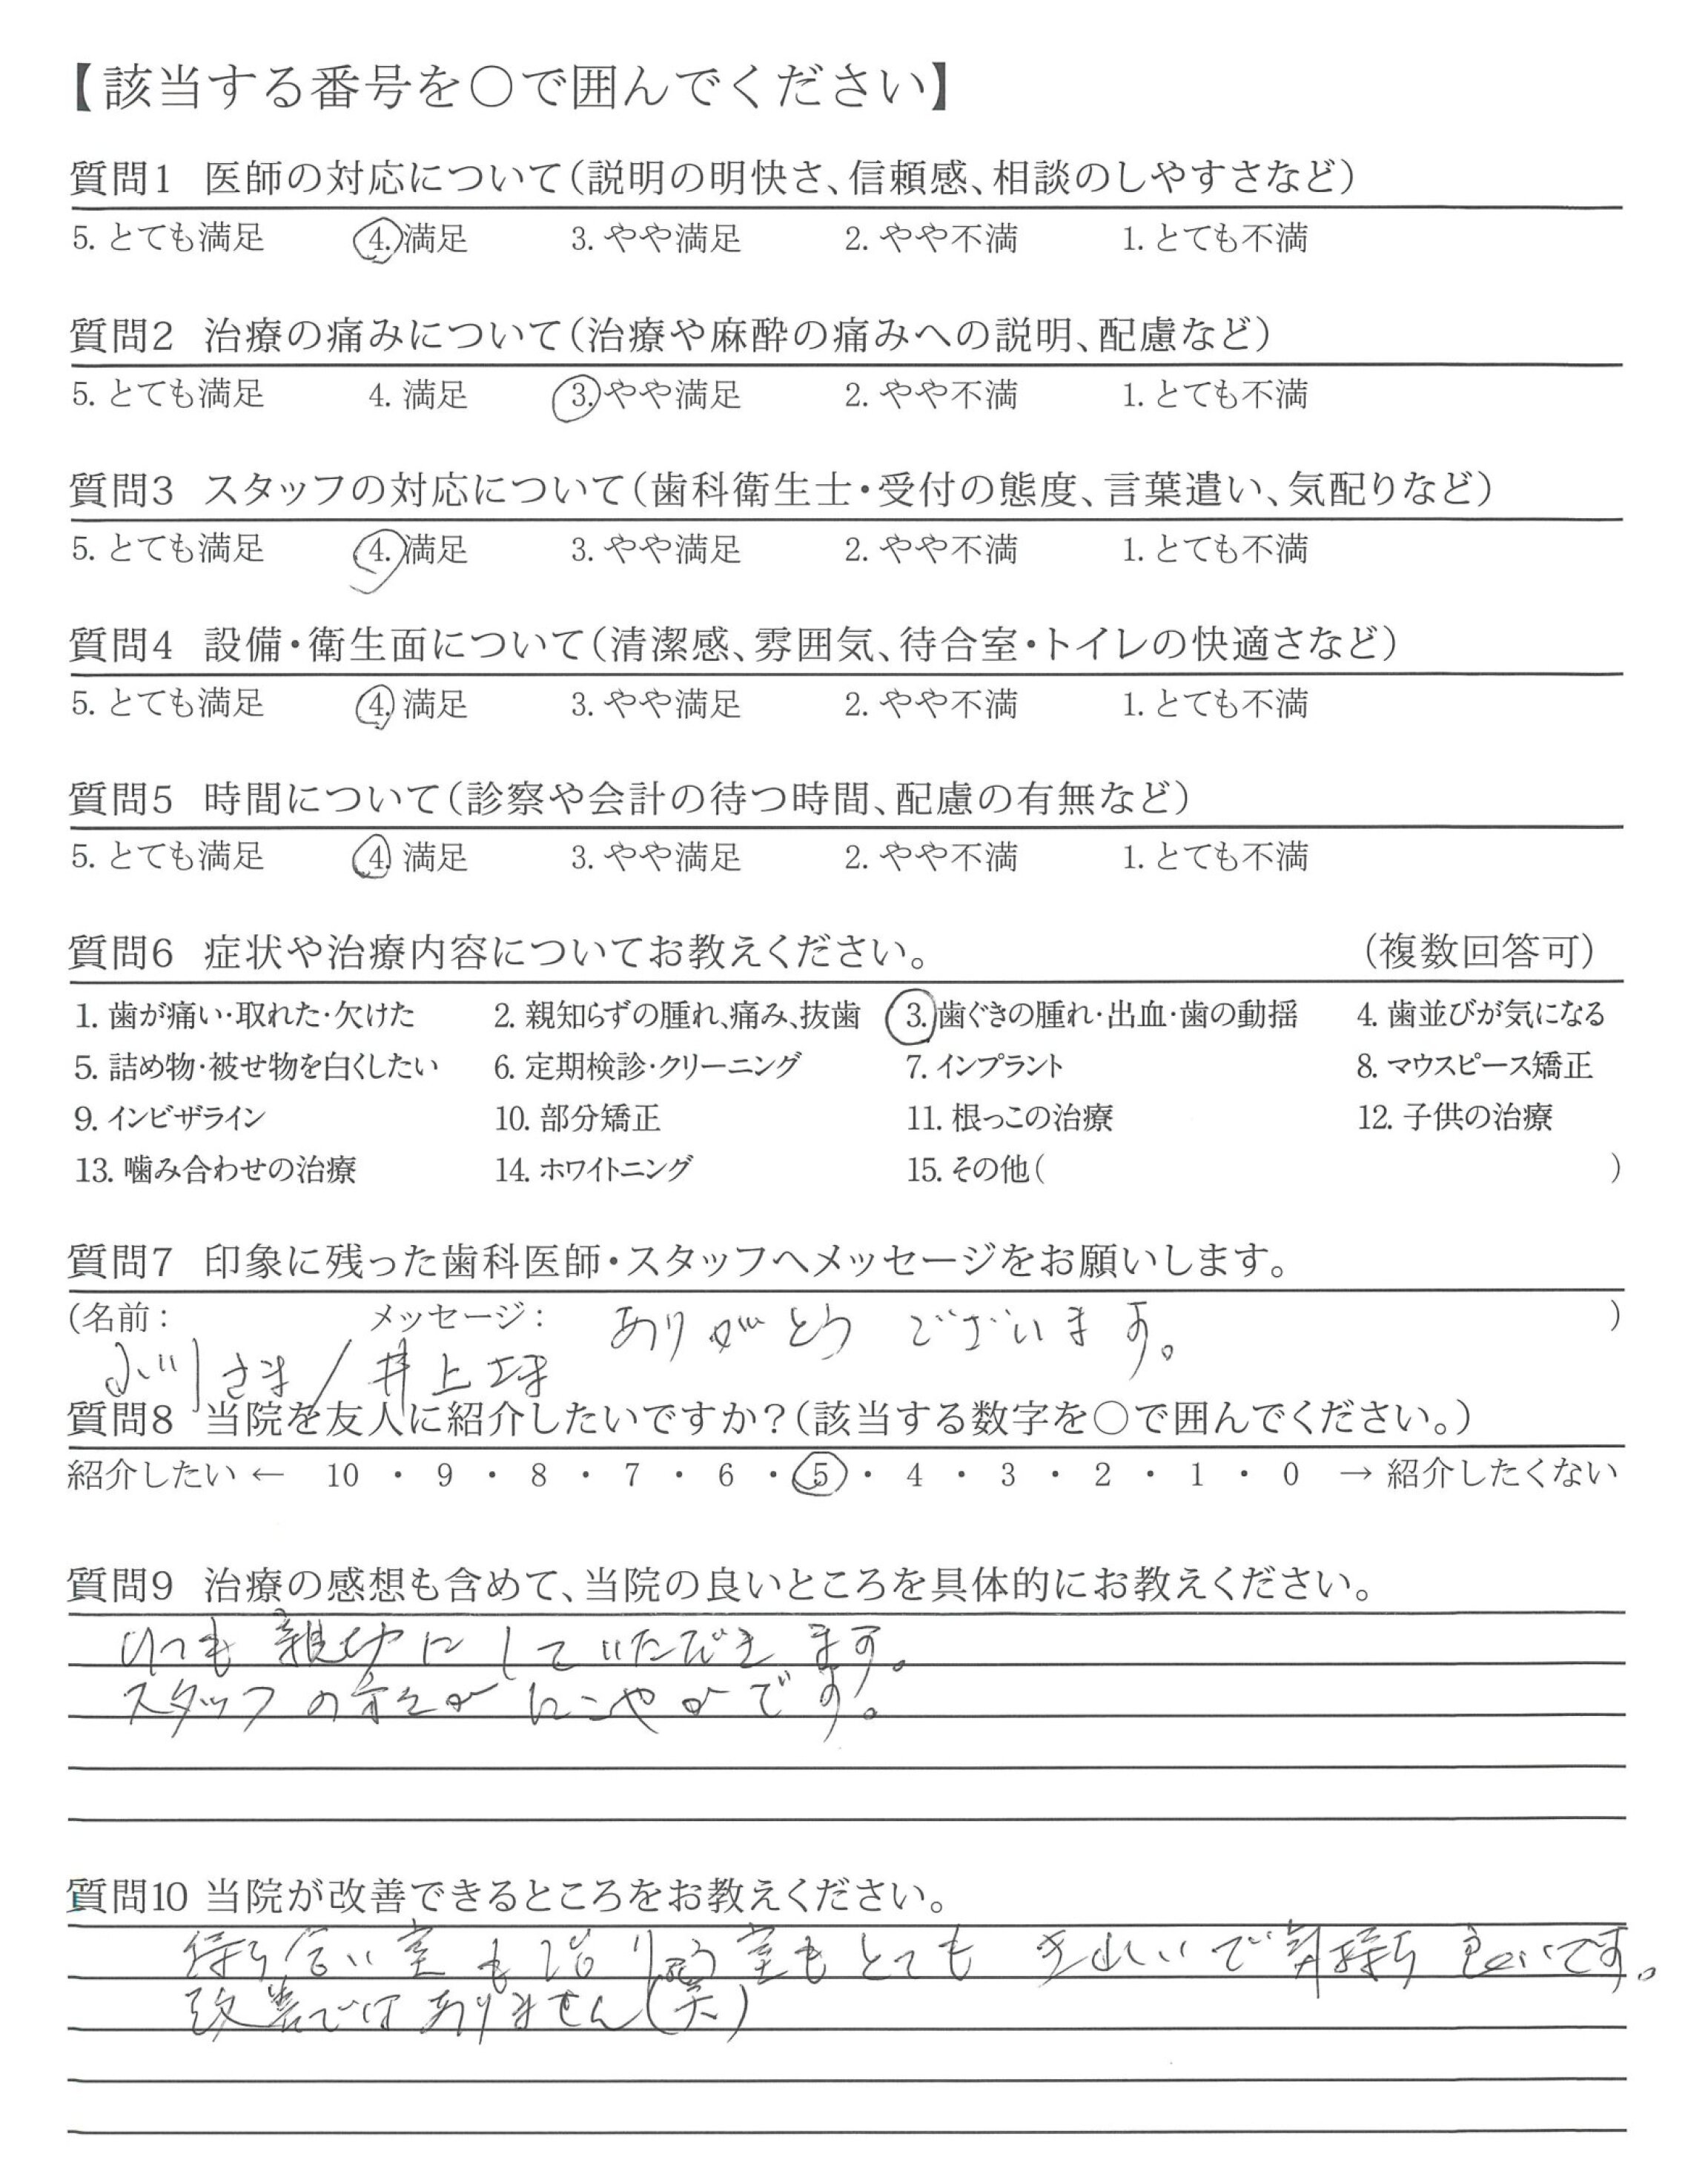 【該当する番号を○で囲んでください】
質問1 医師の対応について(説明の明快さ、信頼感、相談のしやすさなど)
5. とても満足 4. 満足 3. やや満足 2. やや不満 1. とても不満
質問2 治療の痛みについて(治療や麻酔の痛みへの説明、配慮など)
5. とても満足 4. 満足 3. やや満足 2. やや不満 1. とても不満
質問3 スタッフの対応について(歯科衛生士・受付の態度、言葉遣い、気配りなど)
5. とても満足 4. 満足 3. やや満足 2. やや不満 1. とても不満
質問4 設備・衛生面について(清潔感、雰囲気、待合室・トイレの快適さなど)
5. とても満足 4. 満足 3. やや満足 2. やや不満 1. とても不満
質問5 時間について(診察や会計の待つ時間、配慮の有無など)
5. とても満足 4. 満足 3. やや満足 2. やや不満 1. とても不満
質問6 症状や治療内容についてお教えください。 (複数回答可)
1. 歯が痛い・取れた・欠けた 2. 親知らずの腫れ、痛み、抜歯 3. 歯ぐきの腫れ・出血・歯の動揺 4. 歯並びが気になる
5. 詰め物・被せ物を白くしたい 6. 定期検診・クリーニング 7. インプラント 8. マウスピース矯正
9. インビザライン 10. 部分矯正 11. 根っこの治療 12. 子供の治療
13. 噛み合わせの治療 14. ホワイトニング 15. その他( )
質問7 印象に残った歯科医師・スタッフへメッセージをお願いします。
(名前: メッセージ: ありがとうございます。 )
さま/井上さま
質問8 当院を友人に紹介したいですか?(該当する数字を○で囲んでください。)
紹介したい ← 10 ・ 9 ・ 8 ・ 7 ・ 6 ・ 5 ・ 4 ・ 3 ・ 2 ・ 1 ・ 0 → 紹介したくない
質問9 治療の感想も含めて、当院の良いところを具体的にお教えください。
いつも親切にしていただきます。
スタッフの方々がにこやかです。
質問10 当院が改善できるところをお教えください。
待ち合い室も治りょう室もとてもきれいで気持ち良いです。
改善ではありません(笑)